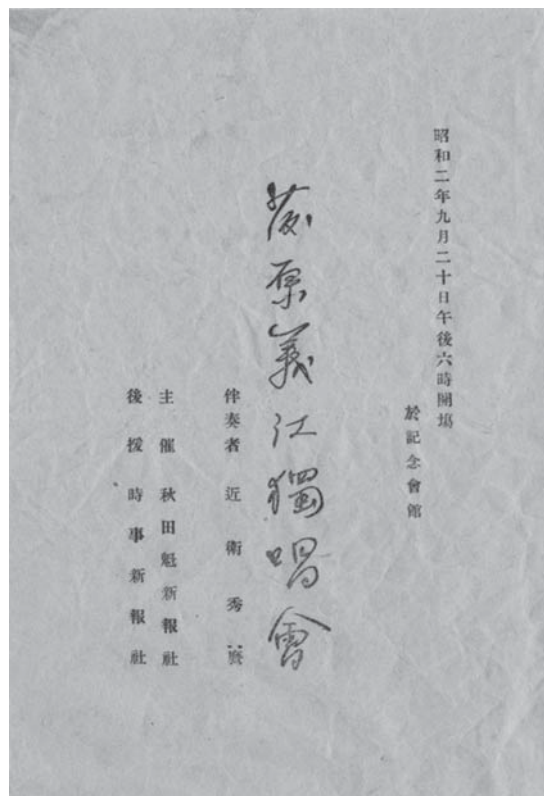 昭和二年九月二十日午後六時開塲
於記念會館
藤原義江獨唱會
伴奏者 近衛秀麿
主催 秋田魁新報社
後援 時事新報社